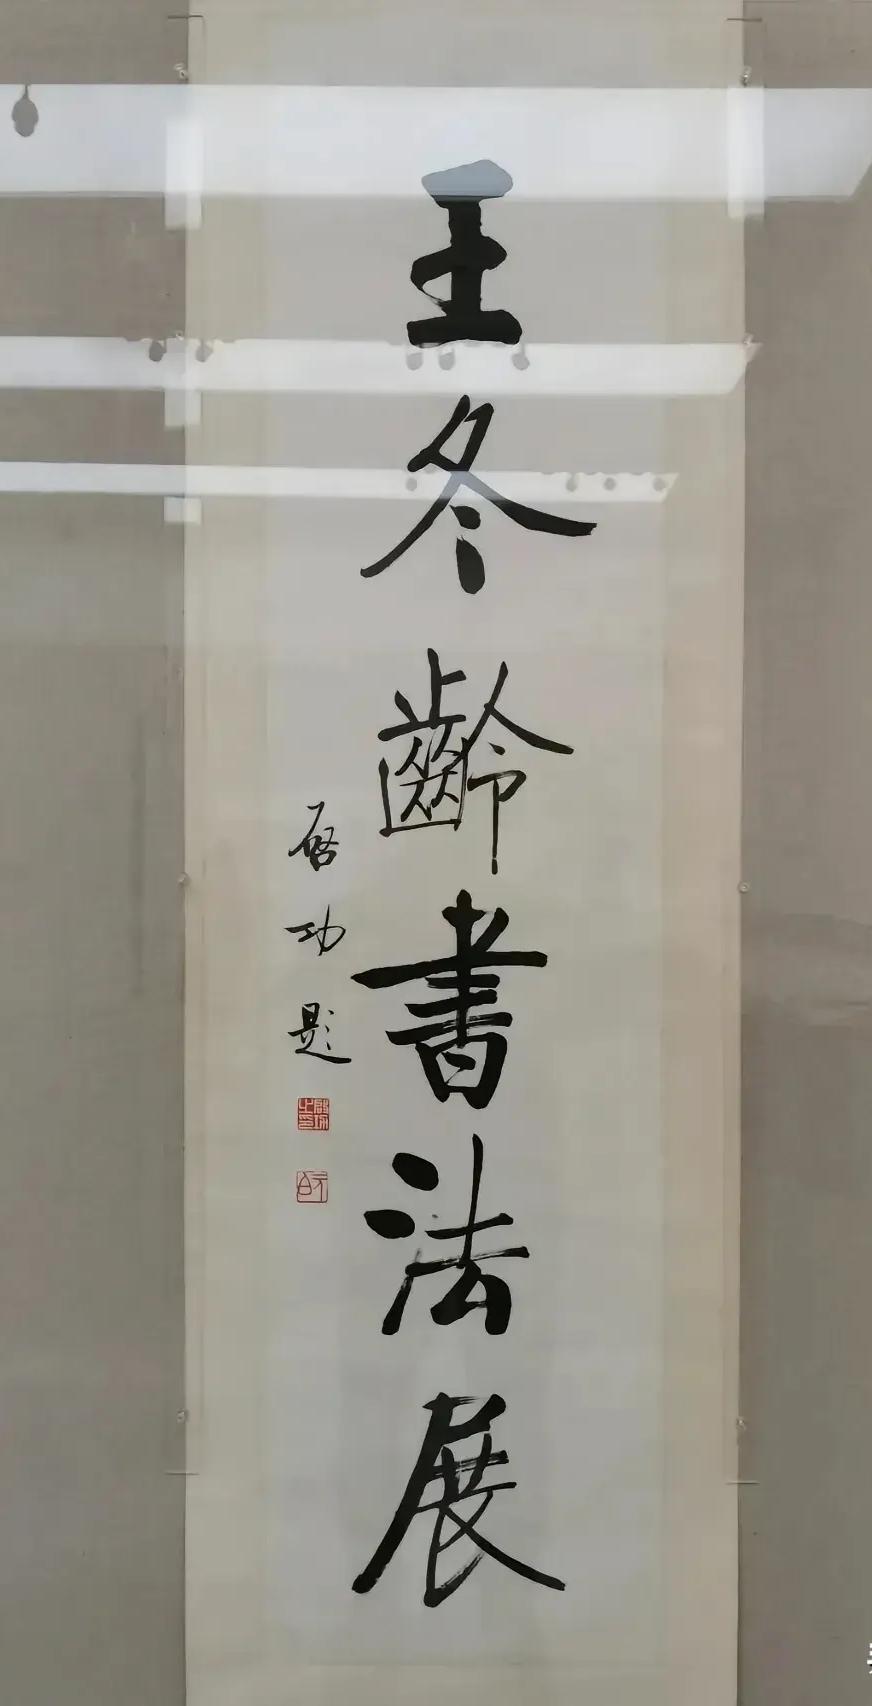 王冬齡書法展
启功題